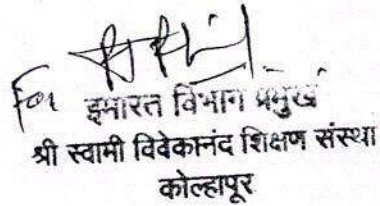 For
इमारत विभाग प्रमुख
श्री स्वामी विवेकानंद शिक्षण संस्था
कोल्हापूर